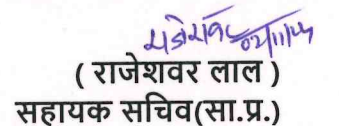 ( राजेशवर लाल )
सहायक सचिव(सा.प्र.)